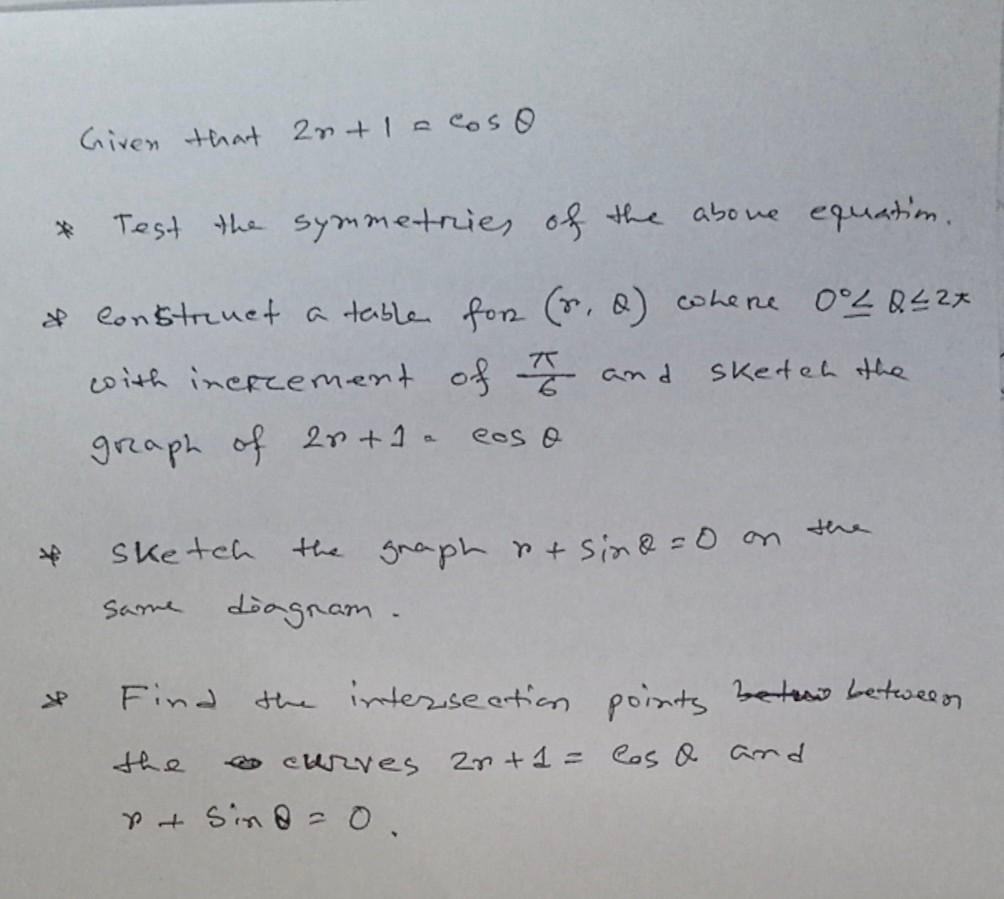 Given that 2r + 1 = cos θ
* Test the symmetries of the above equation.
* Construct a table for (r, θ) where 0° ≤ θ ≤ 2π
with increment of π/6 and sketch the
graph of 2r + 1 = cos θ
* Sketch the graph r + sin θ = 0 on the
same diagram.
* Find the intersection points between
the curves 2r + 1 = cos θ and
r + sin θ = 0.